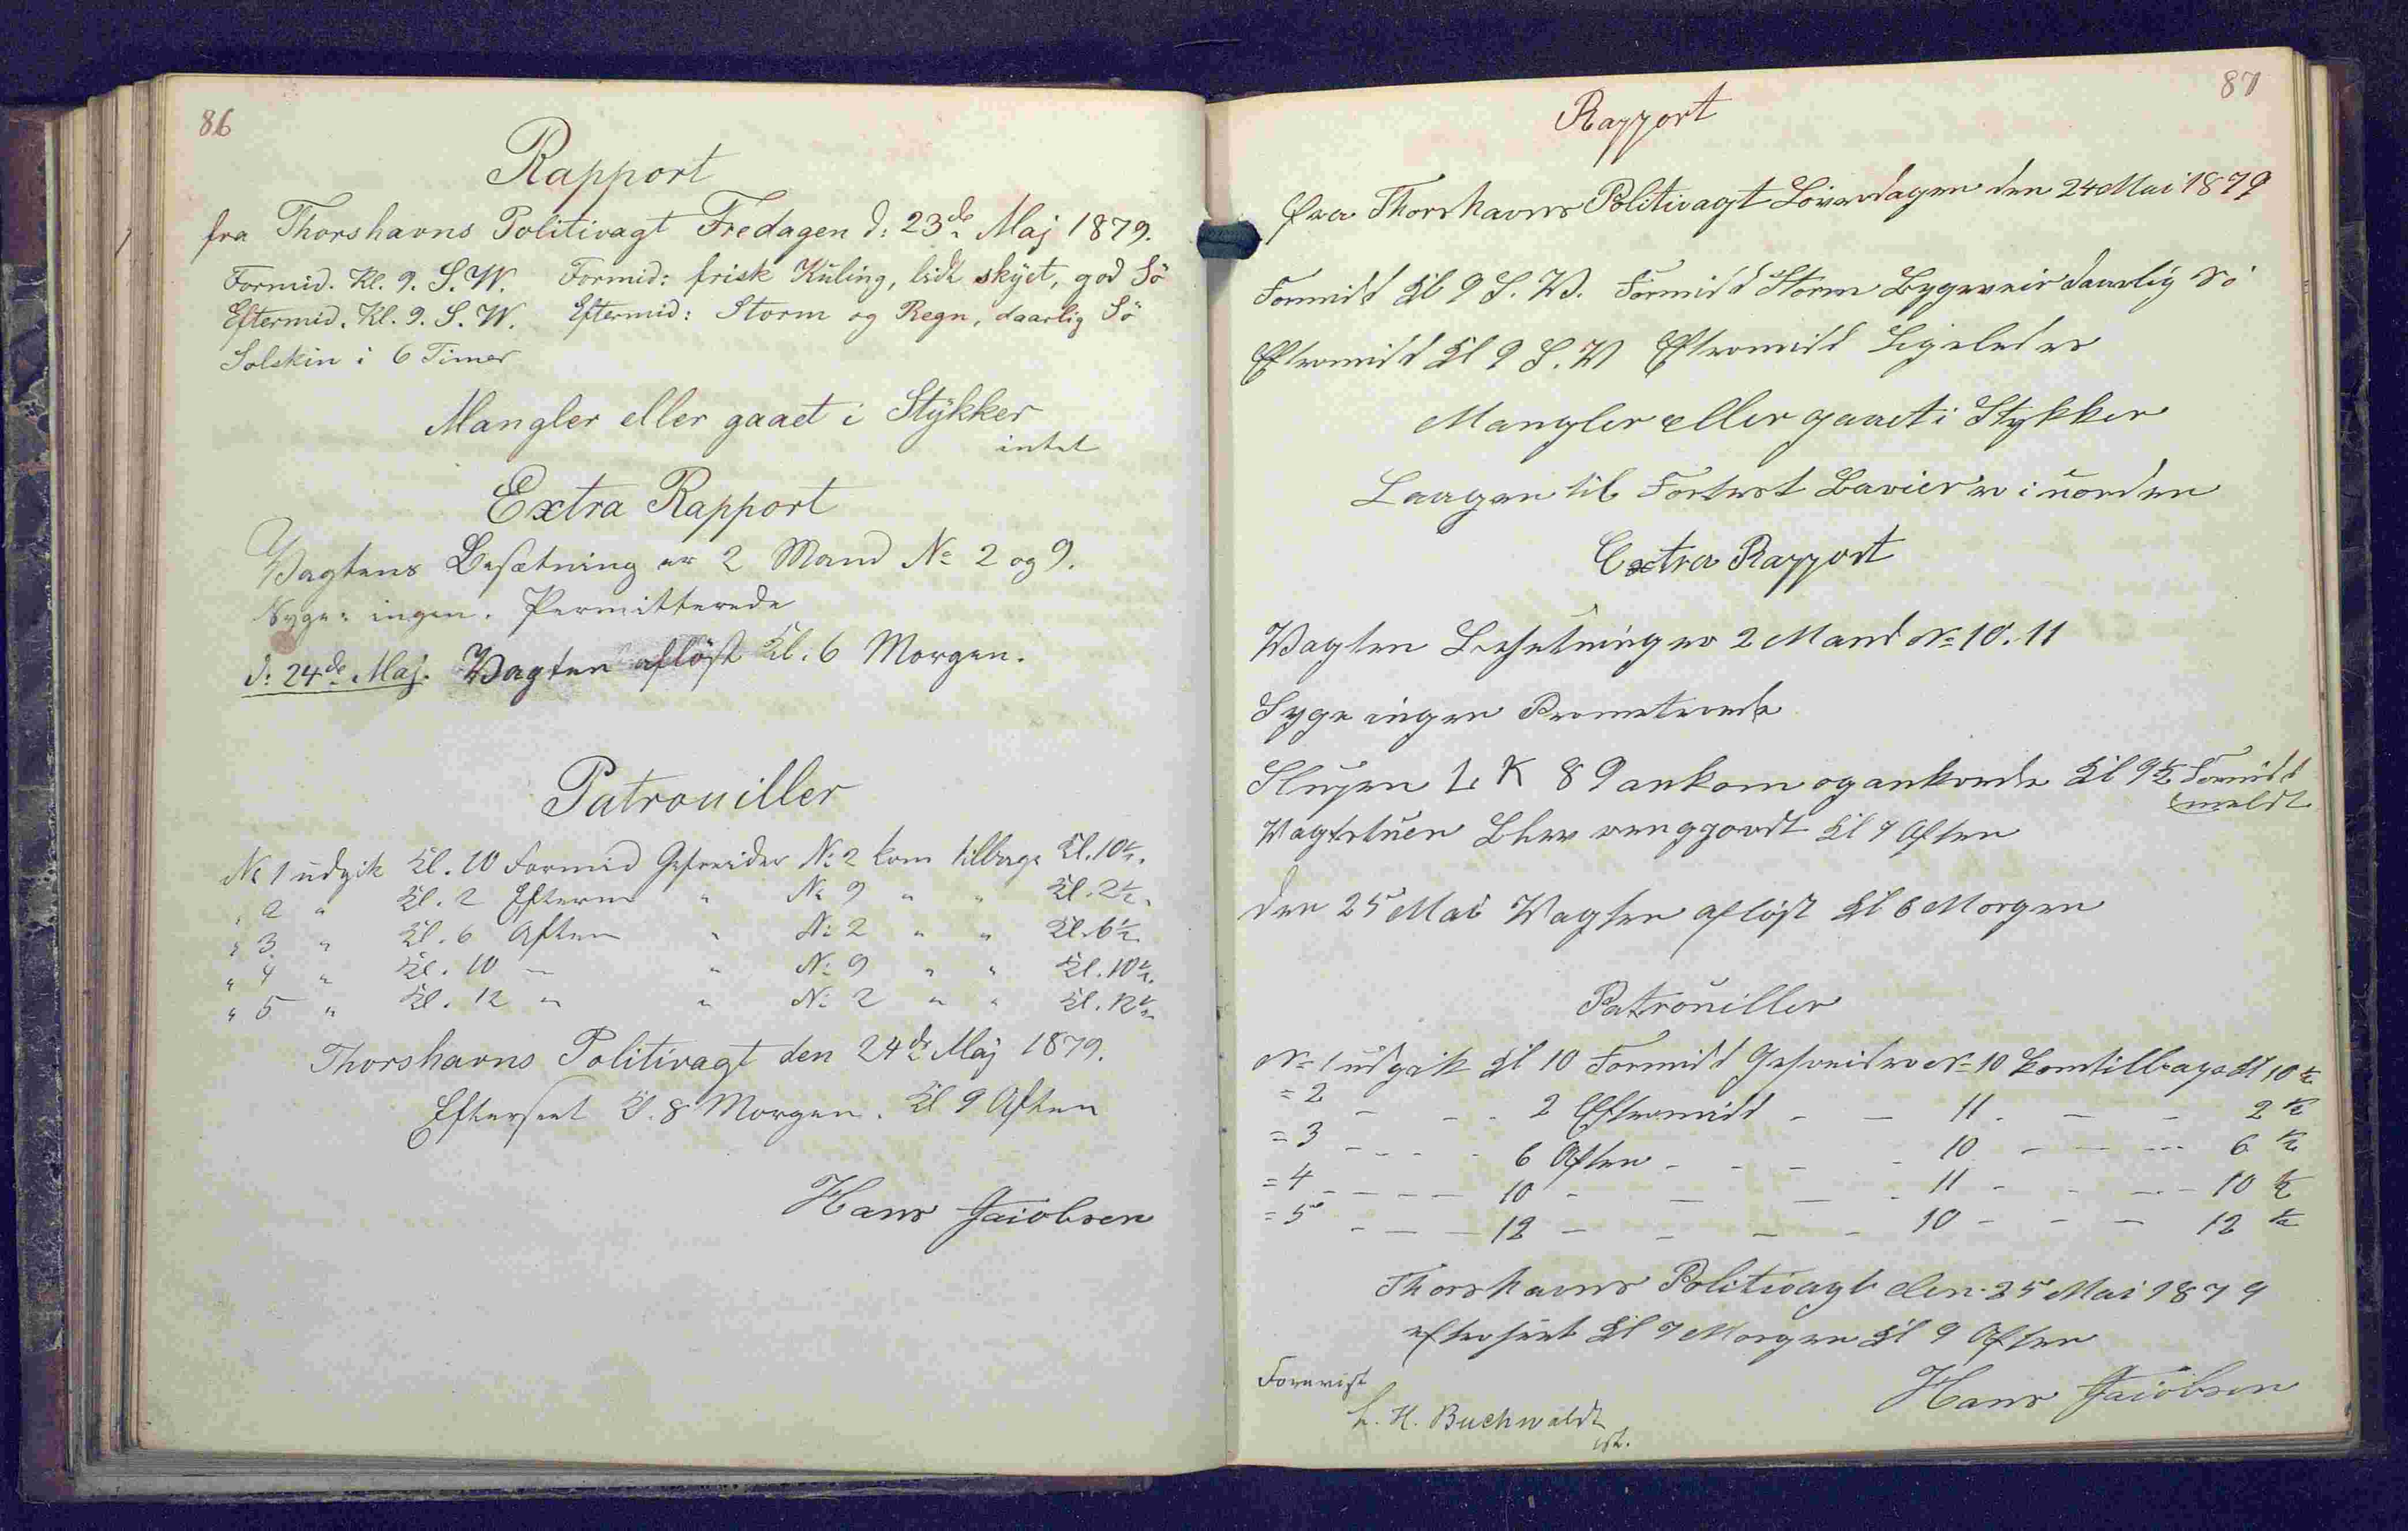 86
Rapport
fra Thorshavns Politivagt Fredagen d: 23de Maj 1879.
Formid. Kl. 9. S.W. Formid: frisk Kuling, lidt skyet, god Sö
Eftermid. Kl. 9. S.W. Eftermid: Storm og Regn, daarlig Sö
Solskin i 6 Timer
Mangler eller gaaet i Stykker
intet
Extra Rapport
Vagtens Besætning er 2 Mand No 2 og 9.
Syge: ingen. Permitterede
d: 24de Maj. Vagten aflöst Kl. 6 Morgen.
Patrouiller
No 1 udgik Kl. 10 Formid Gefreider No 2 kom tilbage Kl. 10½.
" 2 " Kl. 2 Efterm " No 9 " " Kl. 2½.
" 3 " Kl. 6 Aften " No 2 " " Kl. 6½
" 4 " Kl. 10 — " No 9 " " Kl. 10½.
" 5 " Kl. 12 " " No 2 " " Kl. 12½
Thorshavns Politivagt den 24de Maj 1879.
Efterseet Kl. 8 Morgen. Kl 9 Aften
Hans Jacobsen
87
Rapport
fra Thorshavns Politivagt Löverdagen den 24 Mai 1879
Formidd Kl 9 S.W. Formidd Storm Bygeveir daarlig Sö
Eftermidd Kl 9 S.W Eftermidd Ligeledes
Mangler eller gaaet i Stykker
Laagen til Forterst Barier er i uorden
Extra Rapport
Vagten Besetning er 2 Mand No 10. 11
Syge ingen Prometerede
Slupen L K 89 ankom og ankrede Kl 9½ Formidd
meldt
Vagtstuen Blev rengjordt Kl 7 Aften
den 25 Mai Vagten aflöst Kl 6 Morgen
Patrouiller
No 1 udgik Kl 10 Formidd Gefreider No 10 kom tilbage Kl 10½
= 2 - - - 2 Eftermidd - - 11 - - - 2½
= 3 - - - - 6 Aften - - - - 10 - - - 6½
= 4 - - - - 10 - - - - 11 - - - - 10½
= 5 - - - 12 - - - - 10 - - - 12½
Thorshavns Politivagt den 25 Mai 1879
efterseet Kl 7 Morgen Kl 9 Aften
Hans Jacobsen
Forevist
L. H. Buchwaldt